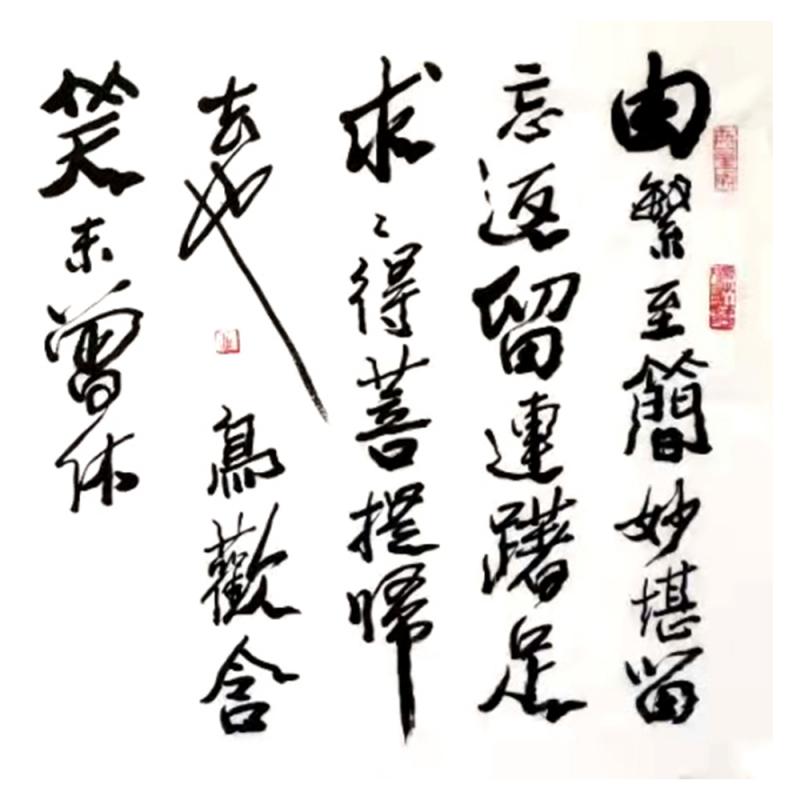 由繁至簡妙堪留
忘返留連躇足
求〻得菩提啼
去也鳥歡含
笑未曾休